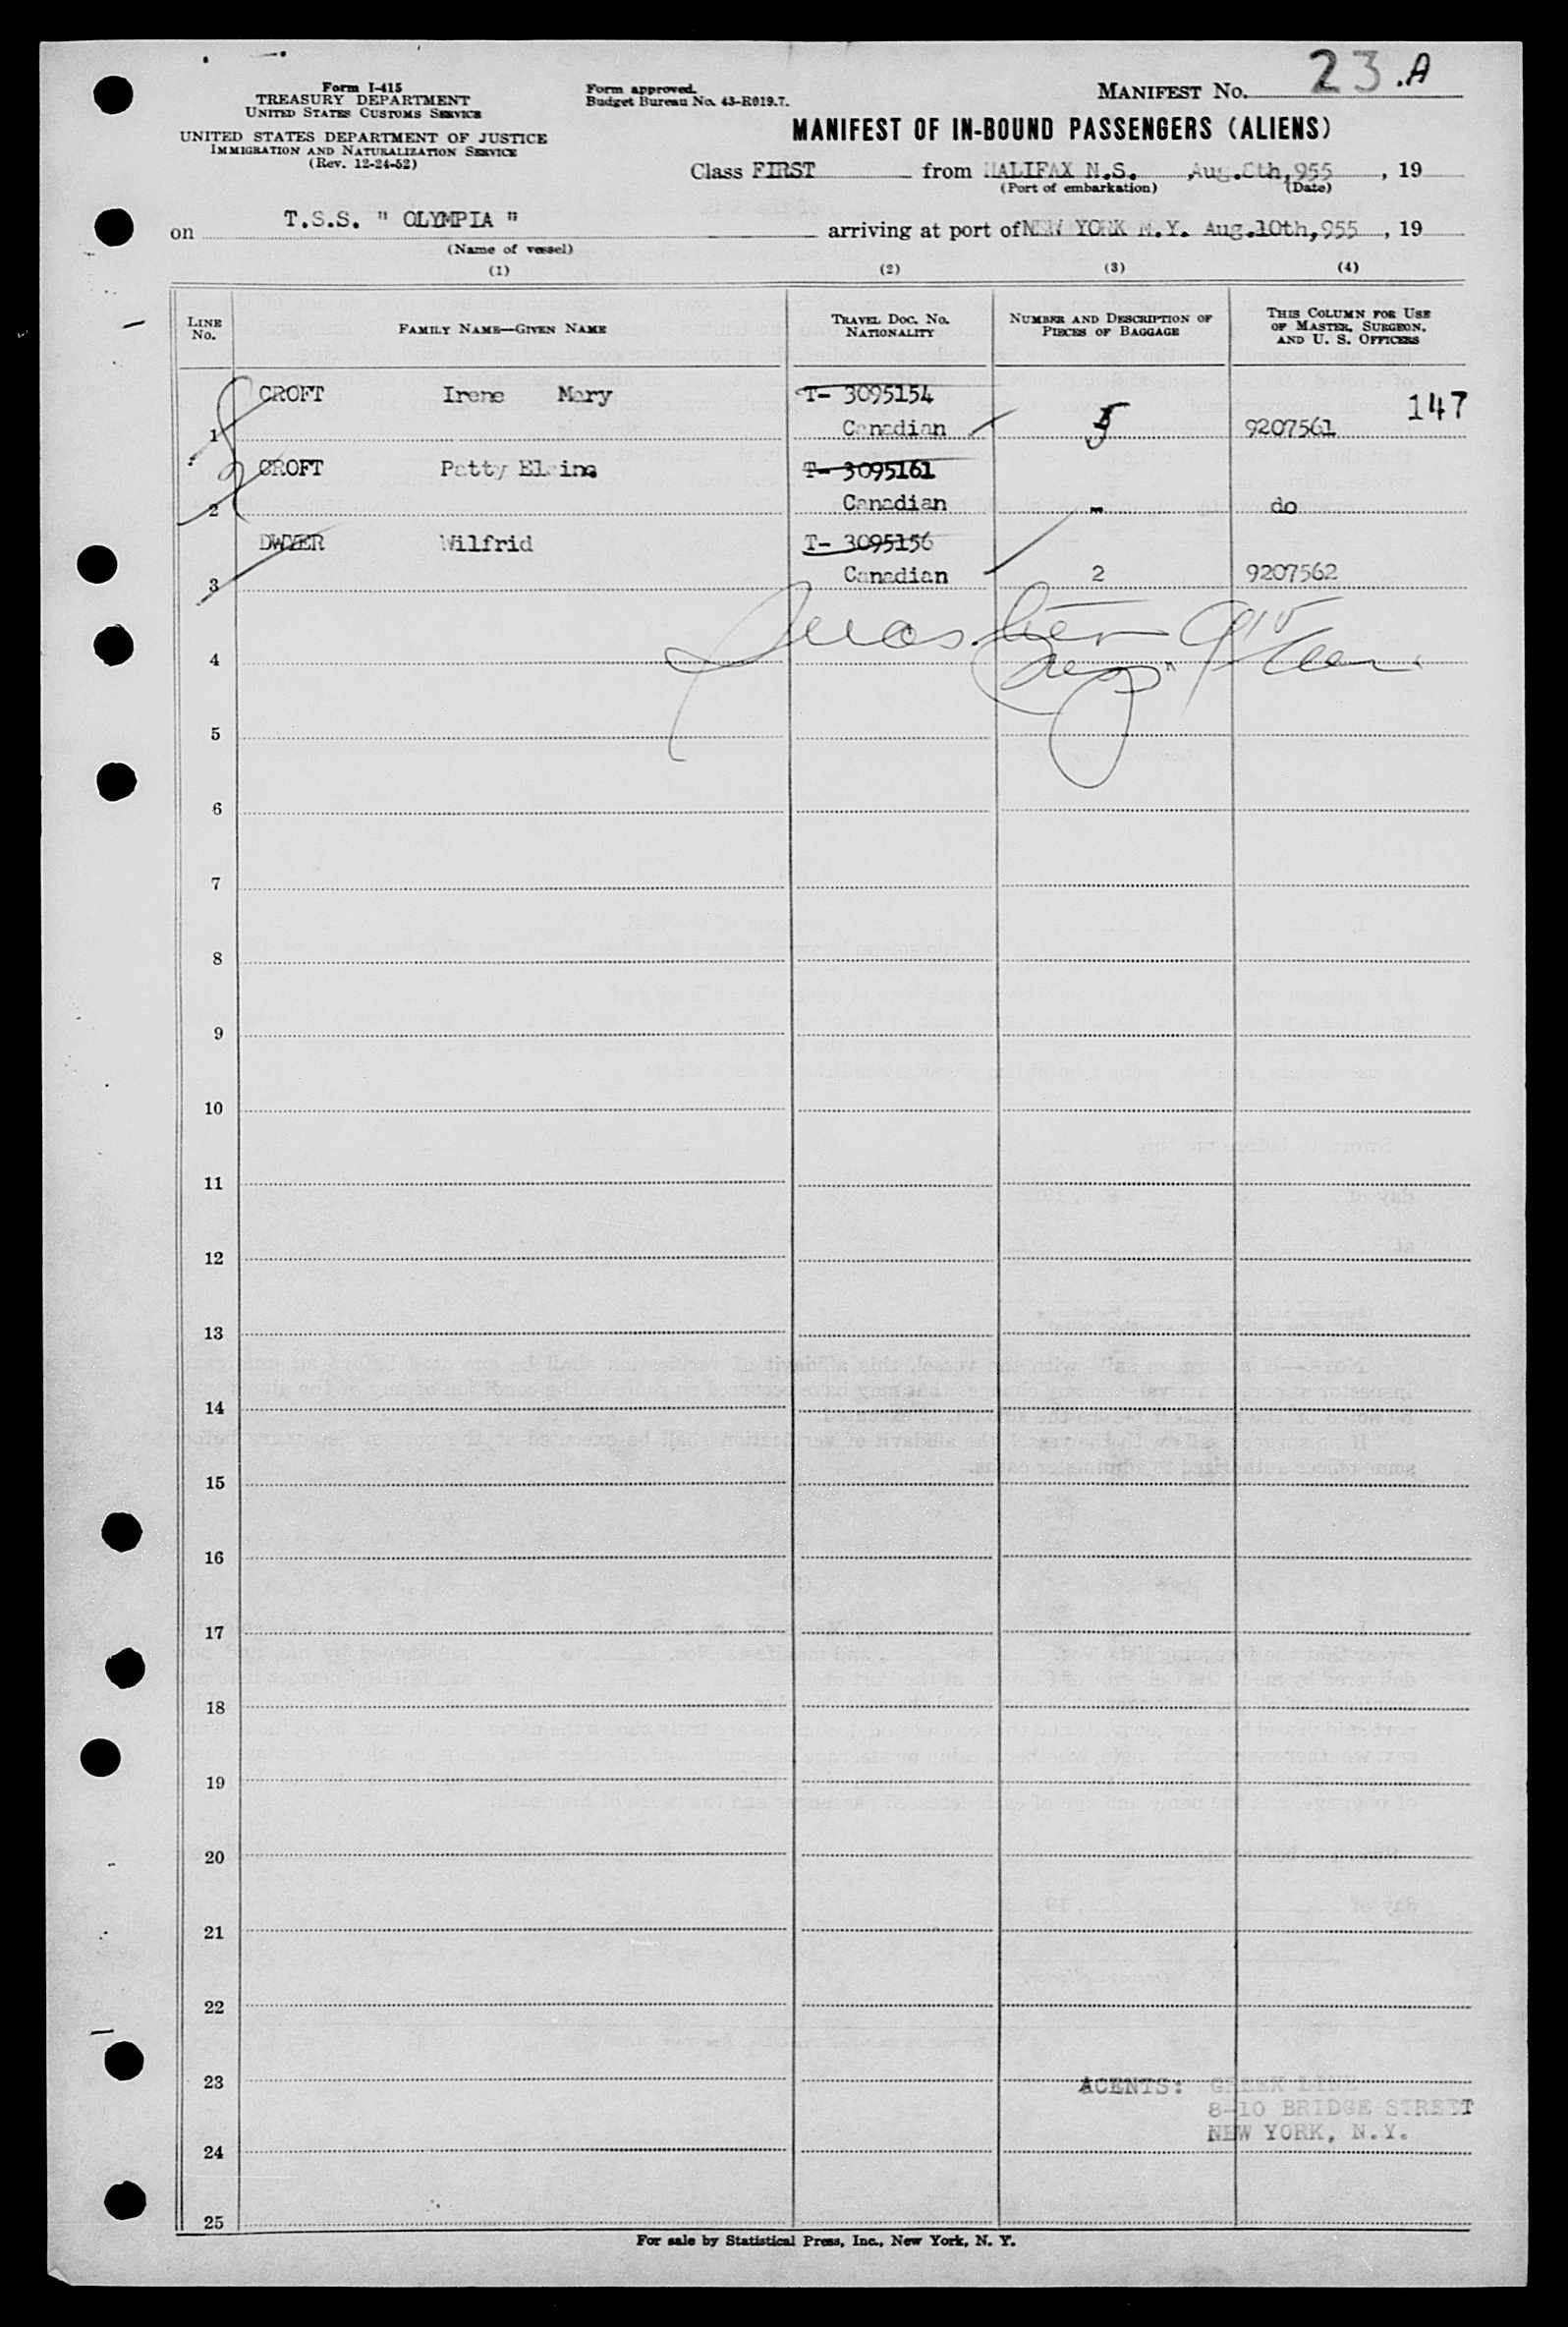 23.A
Form I-415
TREASURY DEPARTMENT
UNITED STATES CUSTOMS SERVICE
UNITED STATES DEPARTMENT OF JUSTICE
IMMIGRATION AND NATURALIZATION SERVICE
(Rev. 12-24-52)
Form approved.
Budget Bureau No. 43-R019.7.
MANIFEST No.
MANIFEST OF IN-BOUND PASSENGERS (ALIENS)
Class FIRST from HALIFAX N.S. ,Aug. 955 , 19
(Port of embarkation) (Date)
on T.S.S. " OLYMPIA " arriving at port of NEW YORK N.Y. Aug.10th,955 , 19
(Name of vessel)
(1) (2) (3) (4)
LINE No. FAMILY NAME—GIVEN NAME TRAVEL DOC. No. NATIONALITY NUMBER AND DESCRIPTION OF PIECES OF BAGGAGE THIS COLUMN FOR USE OF MASTER, SURGEON, AND U. S. OFFICERS
CROFT Irene Mary T- 3095154 147
1 Canadian 9207561
CROFT Patty Elaine T- 3095161
2 Canadian - do
DWYER Wilfrid T- 3095156
3 Canadian 2 9207562
4
5
6
7
8
9
10
11
12
13
14
15
16
17
18
19
20
21
22
23 AGENTS: GREEK LINE
8-10 BRIDGE STREET
NEW YORK, N.Y.
24
25
For sale by Statistical Press, Inc., New York, N. Y.